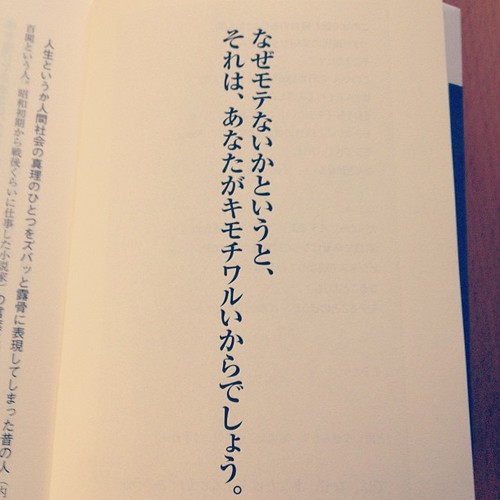 なぜモテないかというと、
それは、あなたがキモチワルいからでしょう。
人生というか人間社会の真理のひとつをズバッと露骨に表現してしまった昔の人
百閒という人。昭和初期から戦後くらいに仕事した小説家）の言葉